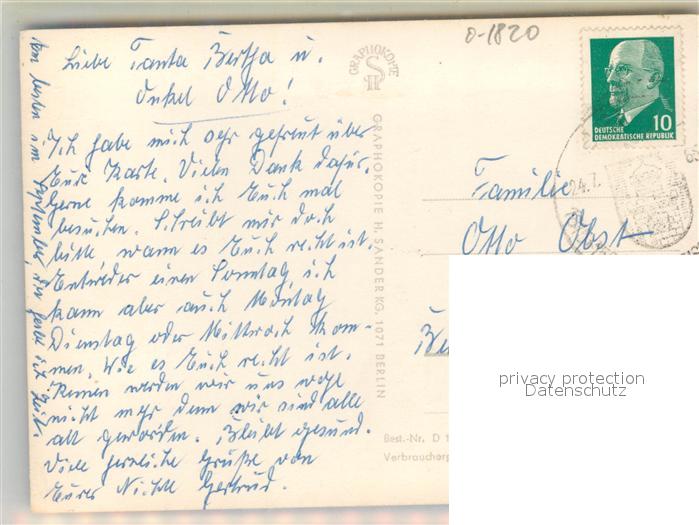 Liebe Tanta Bertha u.
Onkel Otto!
Ich habe mich sehr gefreut über
Eure Karte. Vielen Dank dafür.
Gerne komme ich Euch mal
besuchen. Schreibt mir doch
bitte wann es Euch recht ist.
Entweder einen Sonntag, ich
kann aber auch Montag
Dienstag oder Mittwoch kom-
men. Wie es Euch recht ist.
Kennen werden wir uns wohl
nicht mehr denn wir sind alle
alt geworden. Bleibt gesund.
Viele herzliche Grüße von
Eurer Nichte Gertrud.
Am besten im September, da habe ich Zeit.
GRAPHOKOPIE
GRAPHOKOPIE H. SANDER KG. 1071 BERLIN
0-1820
10
DEUTSCHE
DEMOKRATISCHE REPUBLIK
24.7.
Familie
Otto Obst
Best.-Nr. D 1
Verbraucherp
privacy protection
Datenschutz